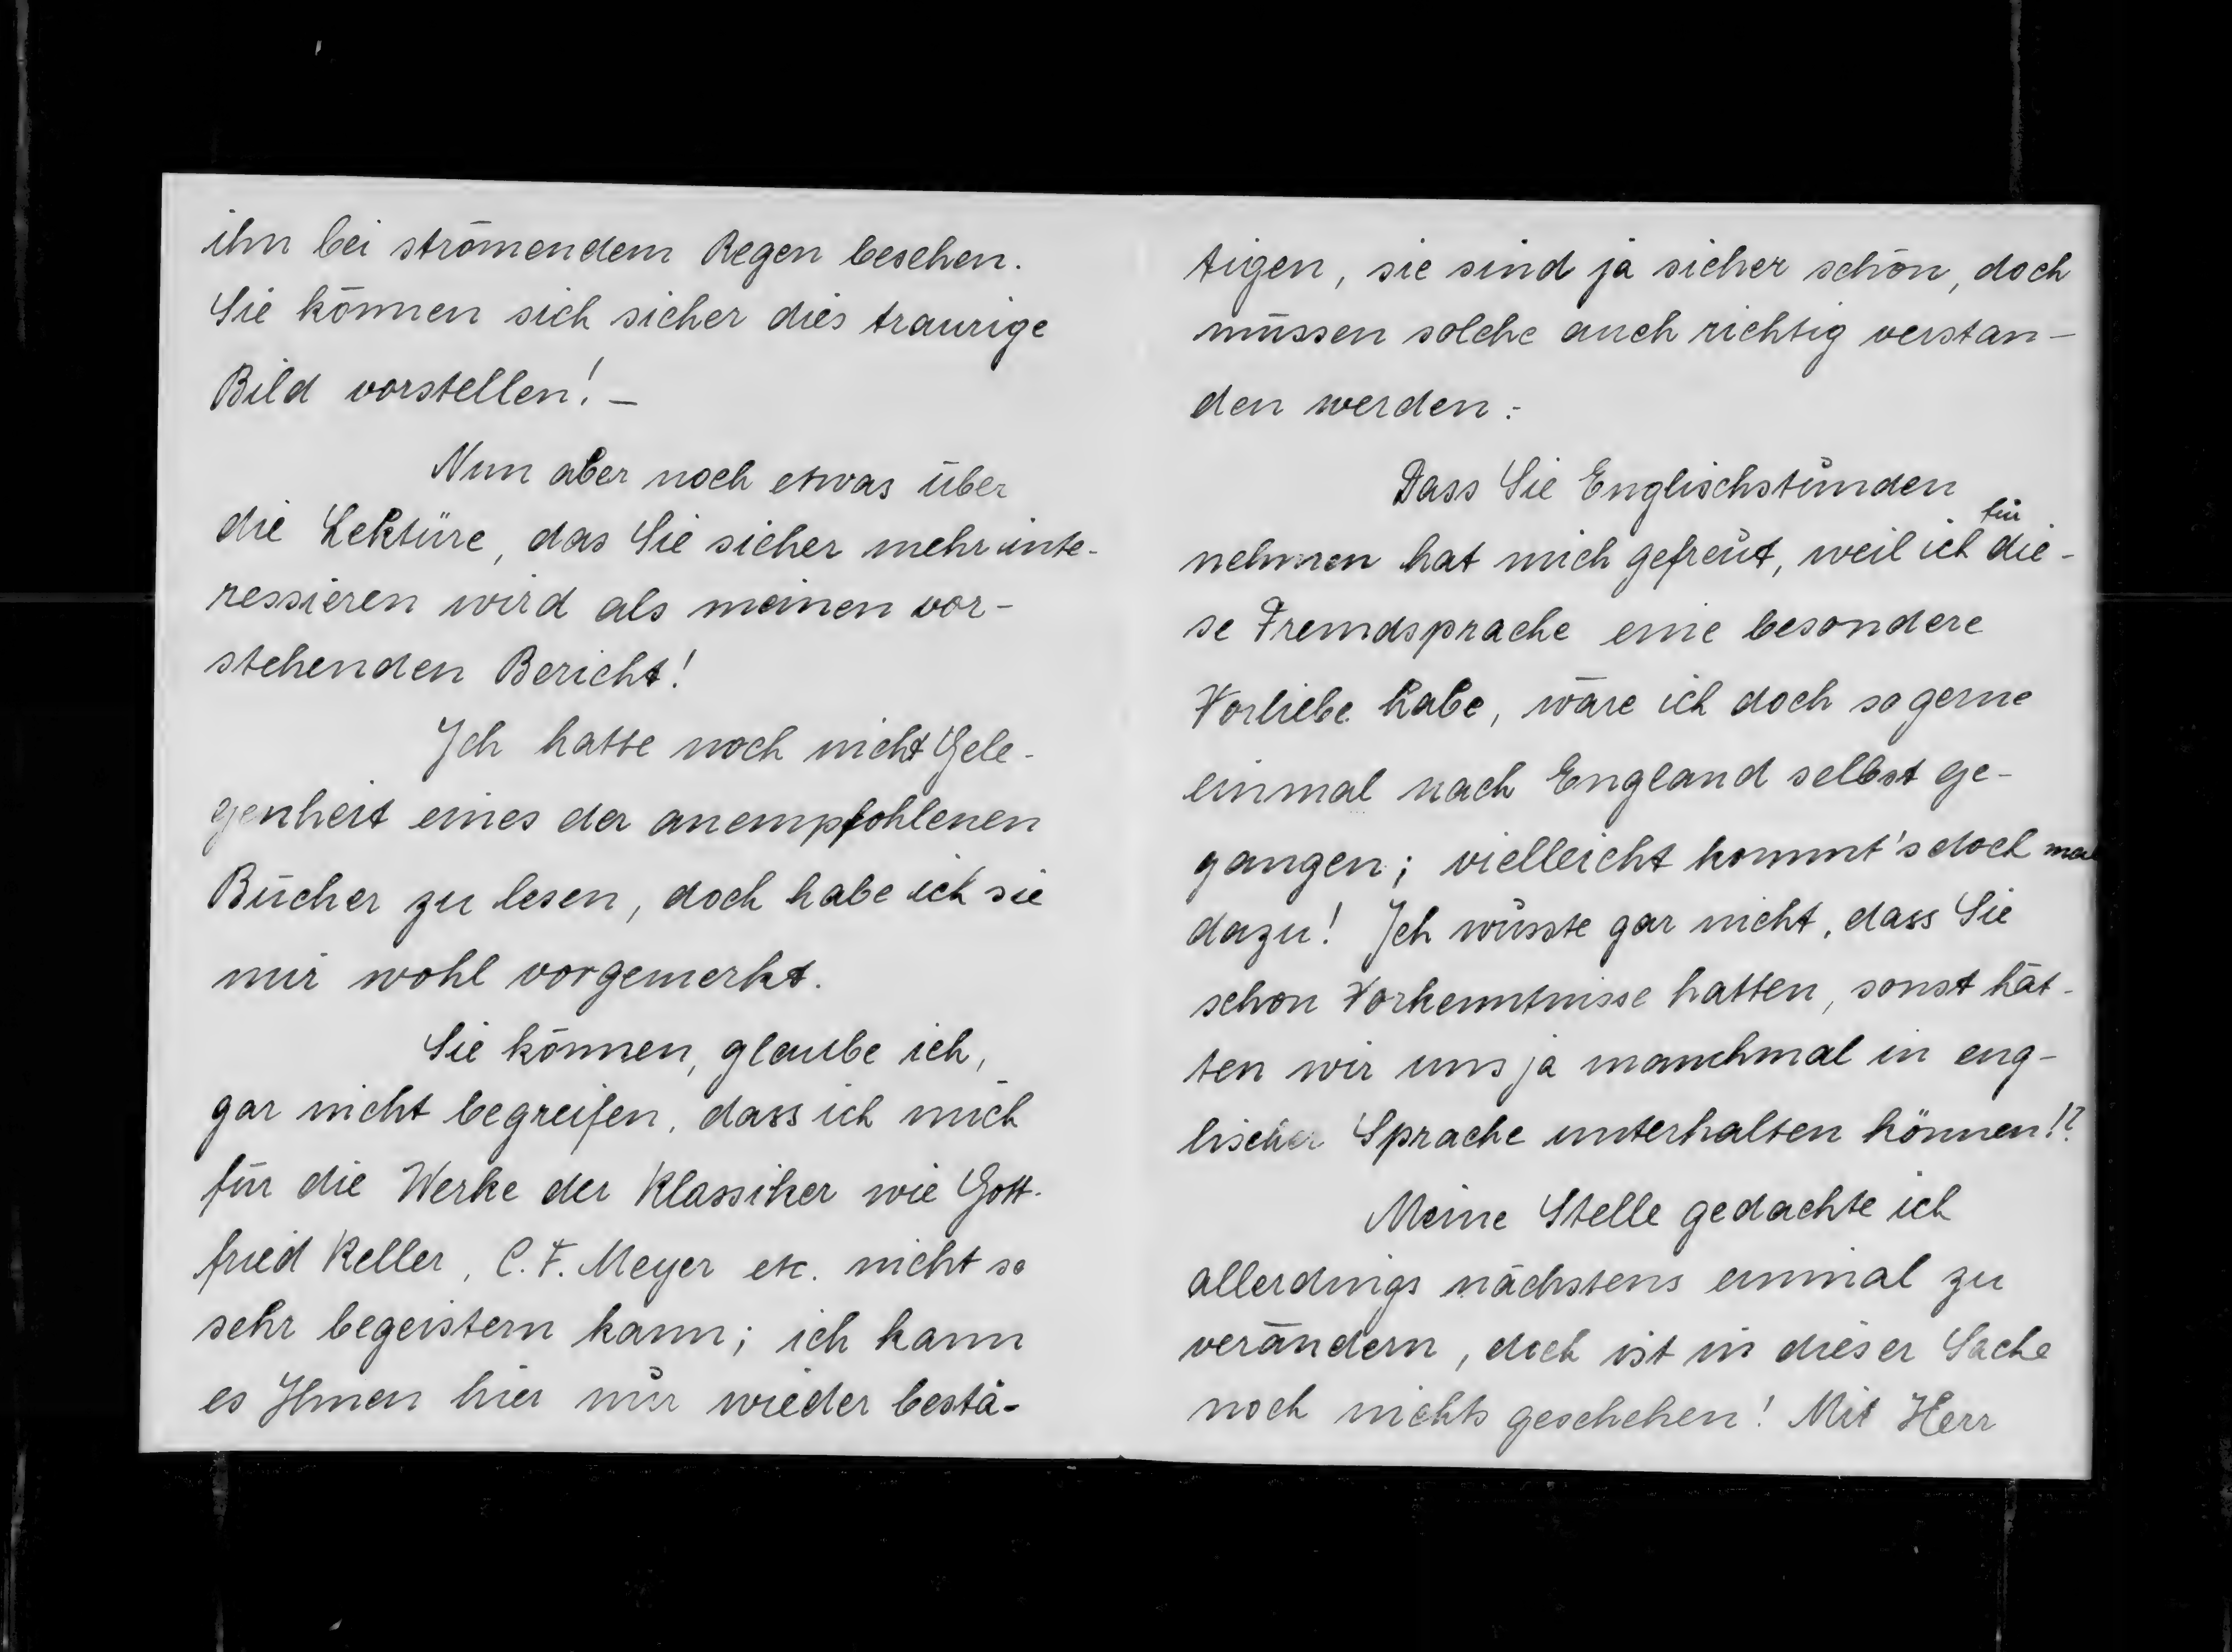 ihn bei strömendem Regen besehen.
Sie können sich sicher dies traurige
Bild vorstellen! –
Nun aber noch etwas über
die Lektüre, das Sie sicher mehr inte-
ressieren wird als meinen vor-
stehenden Bericht!
Ich hatte noch nicht Gele-
genheit eines der anempfohlenen
Bücher zu lesen, doch habe ich sie
mir wohl vorgemerkt.
Sie können, glaube ich,
gar nicht begreifen, dass ich mich
für die Werke der Klassiker wie Gott-
fried Keller, C. F. Meyer etc. nicht so
sehr begeistern kann; ich kann
es Ihnen hier nur wieder bestä-
tigen, sie sind ja sicher schön, doch
müssen solche auch richtig verstan-
den werden.-
Dass Sie Englischstunden
nehmen hat mich gefreut, weil ich für die-
se Fremdsprache eine besondere
Vorliebe habe, wäre ich doch so gerne
einmal nach England selbst ge-
gangen; vielleicht kommt's doch mal
dazu! Ich wusste gar nicht, dass Sie
schon Vorkenntnisse hatten, sonst hät-
ten wir uns ja manchmal in eng-
lischer Sprache unterhalten können!?
Meine Stelle gedachte ich
allerdings nächstens einmal zu
verändern, doch ist in dieser Sache
noch nichts geschehen! Mit Herr